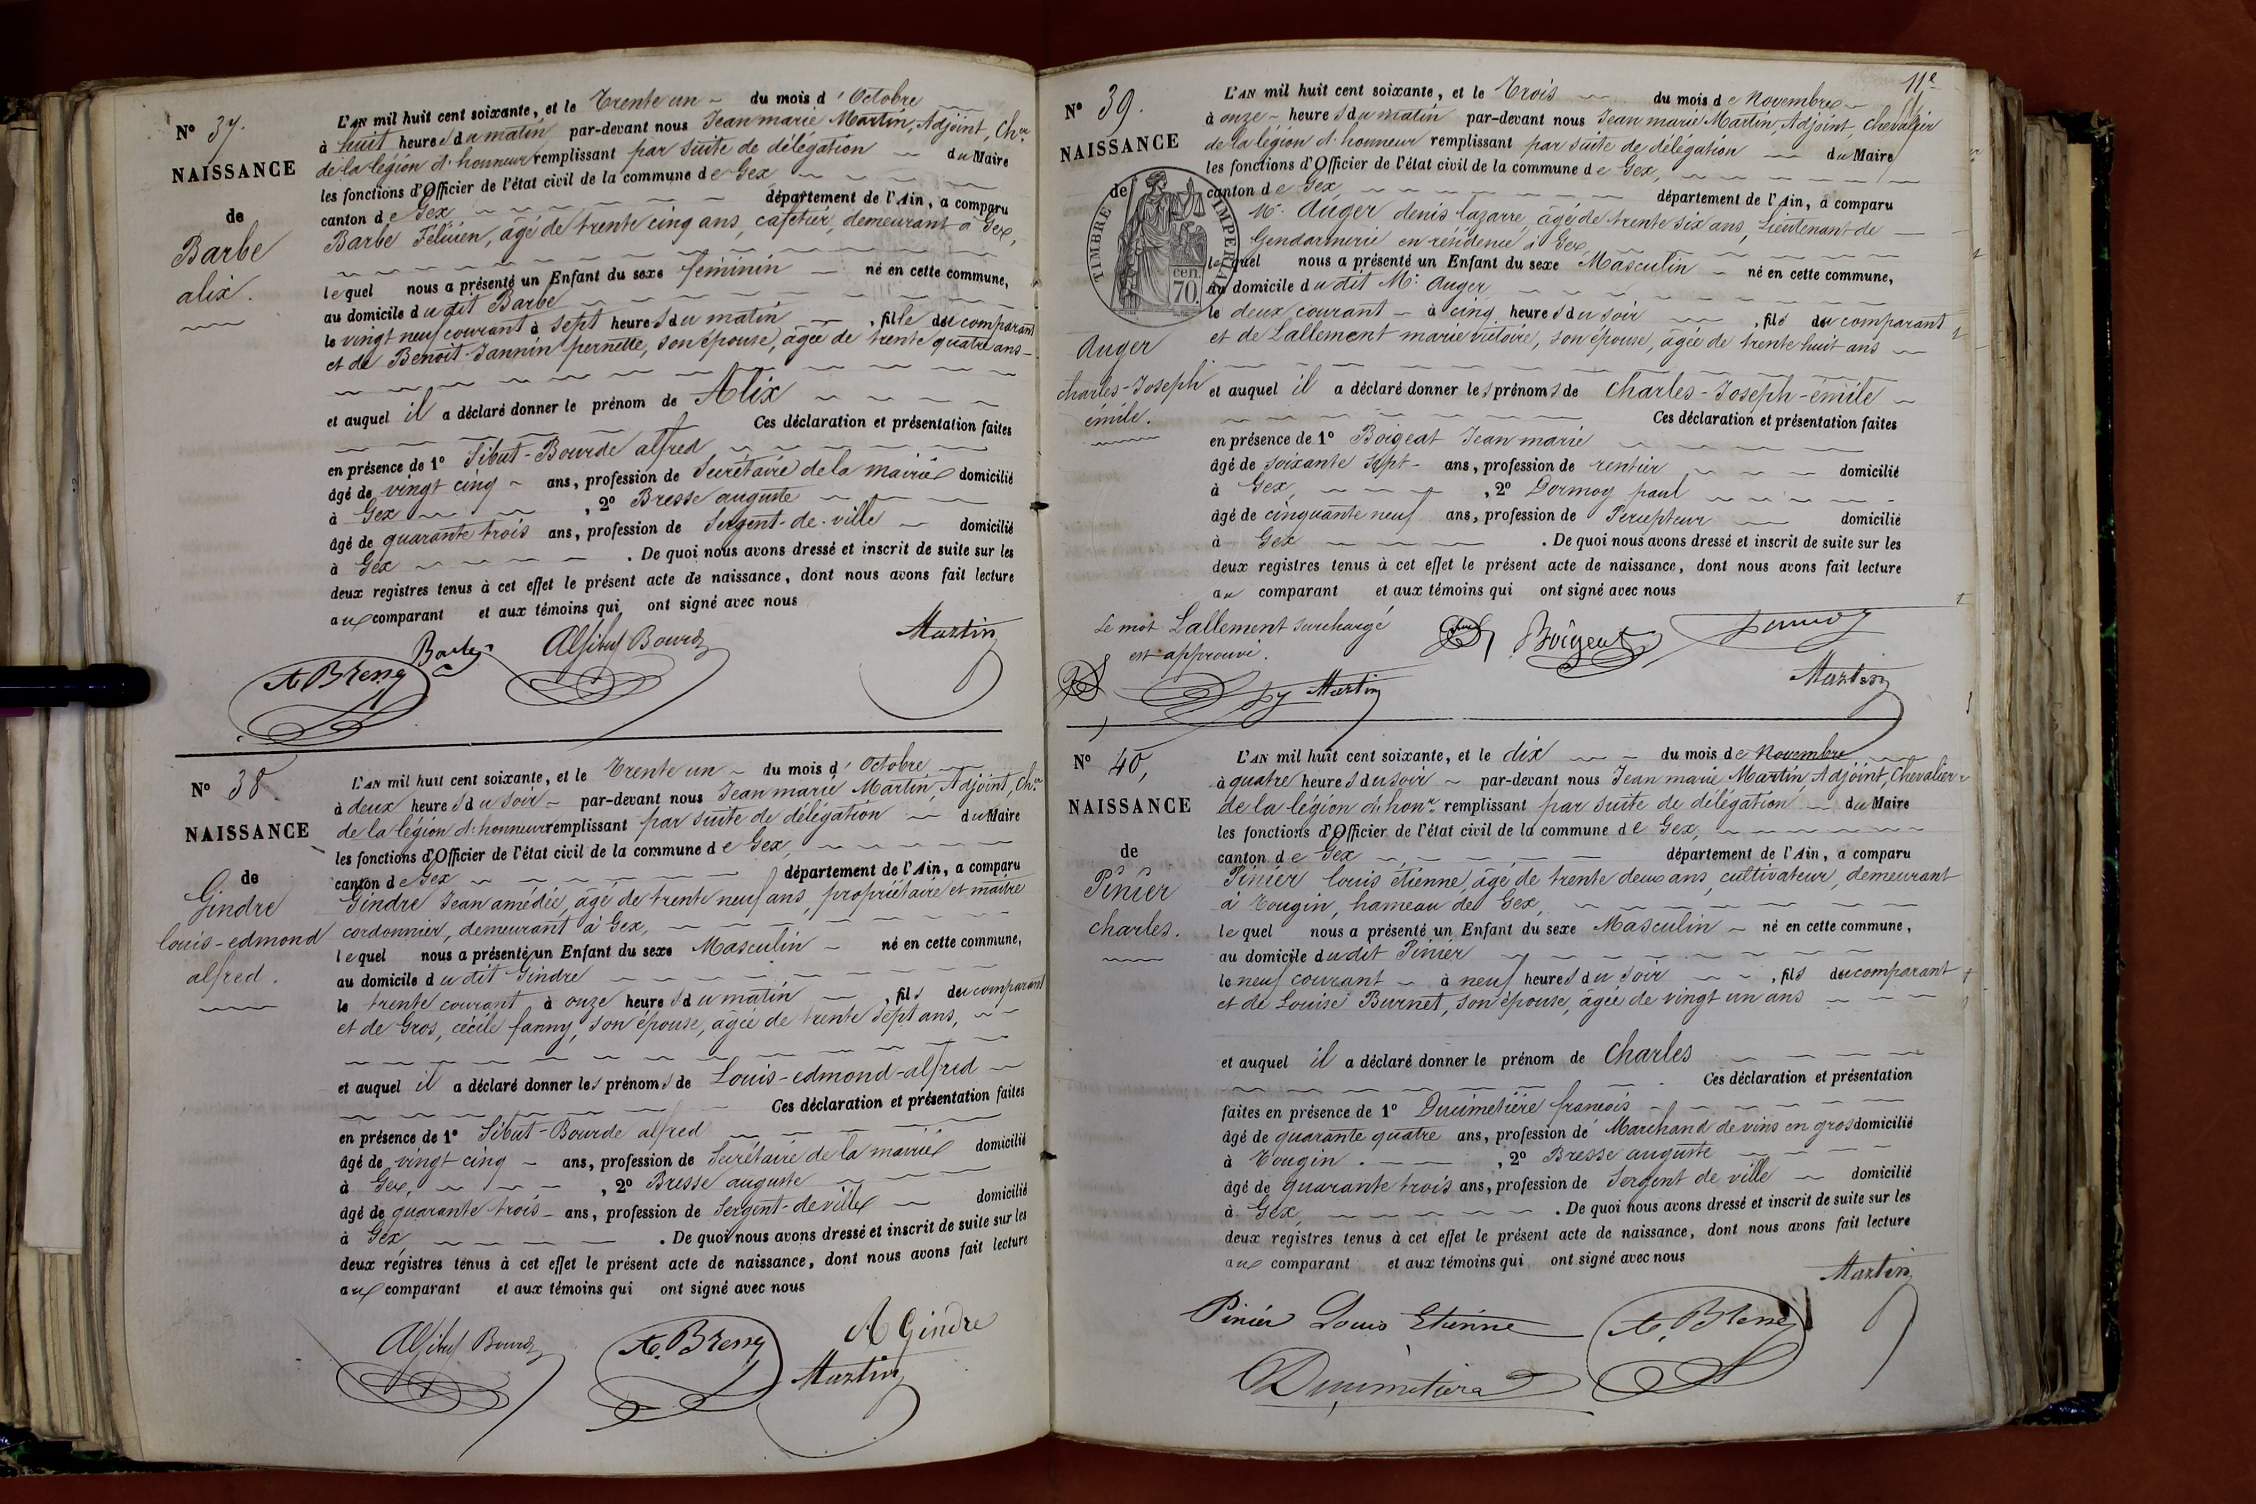 N° 37.
NAISSANCE
de
Barbe
alix.
L'AN mil huit cent soixante, et le Trente un du mois d'Octobre
à huit heures du matin par-devant nous Jean marie Martin, Adjoint, Ch.er
de la légion d'honneur remplissant par suite de délégation du Maire
les fonctions d'Officier de l'état civil de la commune de Gex
canton de Gex département de l'Ain, a comparu
Barbe Félicien, âgé de trente cinq ans, cafetier, demeurant à Gex,
lequel nous a présenté un Enfant du sexe féminin né en cette commune,
au domicile dudit Barbe
le vingt neuf courant à sept heures du matin, fille du comparant
et de Benoit-Jannin pernette, son épouse, âgée de trente quatre ans
et auquel il a déclaré donner le prénom de Alix
Ces déclaration et présentation faites
en présence de 1° Sibut-Bourde alfred
âgé de vingt cinq ans, profession de Secrétaire de la mairie domicilié
à Gex, 2° Bresse auguste
âgé de quarante trois ans, profession de Sergent-de-ville domicilié
à Gex. De quoi nous avons dressé et inscrit de suite sur les
deux registres tenus à cet effet le présent acte de naissance, dont nous avons fait lecture
au comparant et aux témoins qui ont signé avec nous
Barbe Alf Sibut Bourde Martin
A Bresse
N° 38
NAISSANCE
de
Gindre
louis-edmond
alfred.
L'AN mil huit cent soixante, et le Trente un du mois d'Octobre
à deux heures du soir par-devant nous Jean marie Martin, Adjoint, Ch.er
de la légion d'honneur remplissant par suite de délégation du Maire
les fonctions d'Officier de l'état civil de la commune de Gex,
canton de Gex département de l'Ain, a comparu
Gindre Jean amédée, âgé de trente neuf ans, propriétaire et maitre
cordonnier, demeurant à Gex,
lequel nous a présenté un Enfant du sexe Masculin né en cette commune,
au domicile dudit Gindre
le trente courant, à onze heures du matin, fils du comparant
et de Gros, cécile fanny, son épouse, âgée de trente sept ans,
et auquel il a déclaré donner les prénoms de Louis-edmond-alfred
Ces déclaration et présentation faites
en présence de 1° Sibut-Bourde alfred
âgé de vingt cinq ans, profession de Secrétaire de la mairie domicilié
à Gex, 2° Bresse auguste
âgé de quarante trois ans, profession de Sergent-de ville domicilié
à Gex. De quoi nous avons dressé et inscrit de suite sur les
deux régistres tenus à cet effet le présent acte de naissance, dont nous avons fait lecture
au comparant et aux témoins qui ont signé avec nous
Alf Sibut Bourde A. Bresse A Gindre
Martin
11e
N° 39.
NAISSANCE
de
TIMBRE IMPERIAL
cen.
70.
Auger
charles-Joseph
émile.
L'AN mil huit cent soixante, et le Trois du mois de Novembre
à onze heures du matin par-devant nous Jean marie Martin, Adjoint, Chevalier
de la légion d'honneur remplissant par suite de délégation du Maire
les fonctions d'Officier de l'état civil de la commune de Gex,
canton de Gex, département de l'Ain, a comparu
M. Auger denis lazarre, âgé de trente six ans, Lieutenant de
Gendarmerie en résidence à Gex
lequel nous a présenté un Enfant du sexe Masculin né en cette commune,
au domicile dudit Mr. Auger
le deux courant à cinq heures du soir, fils du comparant
et de Lallement marie victoire, son épouse, âgée de trente huit ans
et auquel il a déclaré donner les prénoms de Charles-Joseph-émile
Ces déclaration et présentation faites
en présence de 1° Boigeat Jean marie
âgé de soixante sept ans, profession de rentier domicilié
à Gex, 2° Dormoy paul
âgé de cinquante neuf ans, profession de Percepteur domicilié
à Gex. De quoi nous avons dressé et inscrit de suite sur les
deux registres tenus à cet effet le présent acte de naissance, dont nous avons fait lecture
au comparant et aux témoins qui ont signé avec nous
Le mot Lallement surchargé
est approuvé.
Boigeat Dormoy
Martin Martin
N° 40,
NAISSANCE
de
Pinier
charles.
L'AN mil huit cent soixante, et le dix du mois de Novembre
à quatre heures du soir par-devant nous Jean marie Martin, Adjoint, Chevalier
de la légion d'honr. remplissant par suite de délégation du Maire
les fonctions d'Officier de l'état civil de la commune de Gex,
canton de Gex département de l'Ain, a comparu
Pinier louis étienne, âgé de trente deux ans, cultivateur, demeurant
à Tougin, hameau de Gex,
lequel nous a présenté un Enfant du sexe Masculin né en cette commune,
au domicile dudit Pinier
le neuf courant à neuf heures du soir, fils du comparant
et de Louise Burnet, son épouse, âgée de vingt un ans
et auquel il a déclaré donner le prénom de Charles
Ces déclaration et présentation
faites en présence de 1° Ducimetière francois
âgé de quarante quatre ans, profession de Marchand de vins en gros domicilié
à Tougin, 2° Bresse auguste
âgé de quarante trois ans, profession de Sergent de ville domicilié
à Gex,. De quoi nous avons dressé et inscrit de suite sur les
deux registres tenus à cet effet le présent acte de naissance, dont nous avons fait lecture
au comparant et aux témoins qui ont signé avec nous
Martin
Pinier Louis Etienne A. Bresse
Ducimetiere